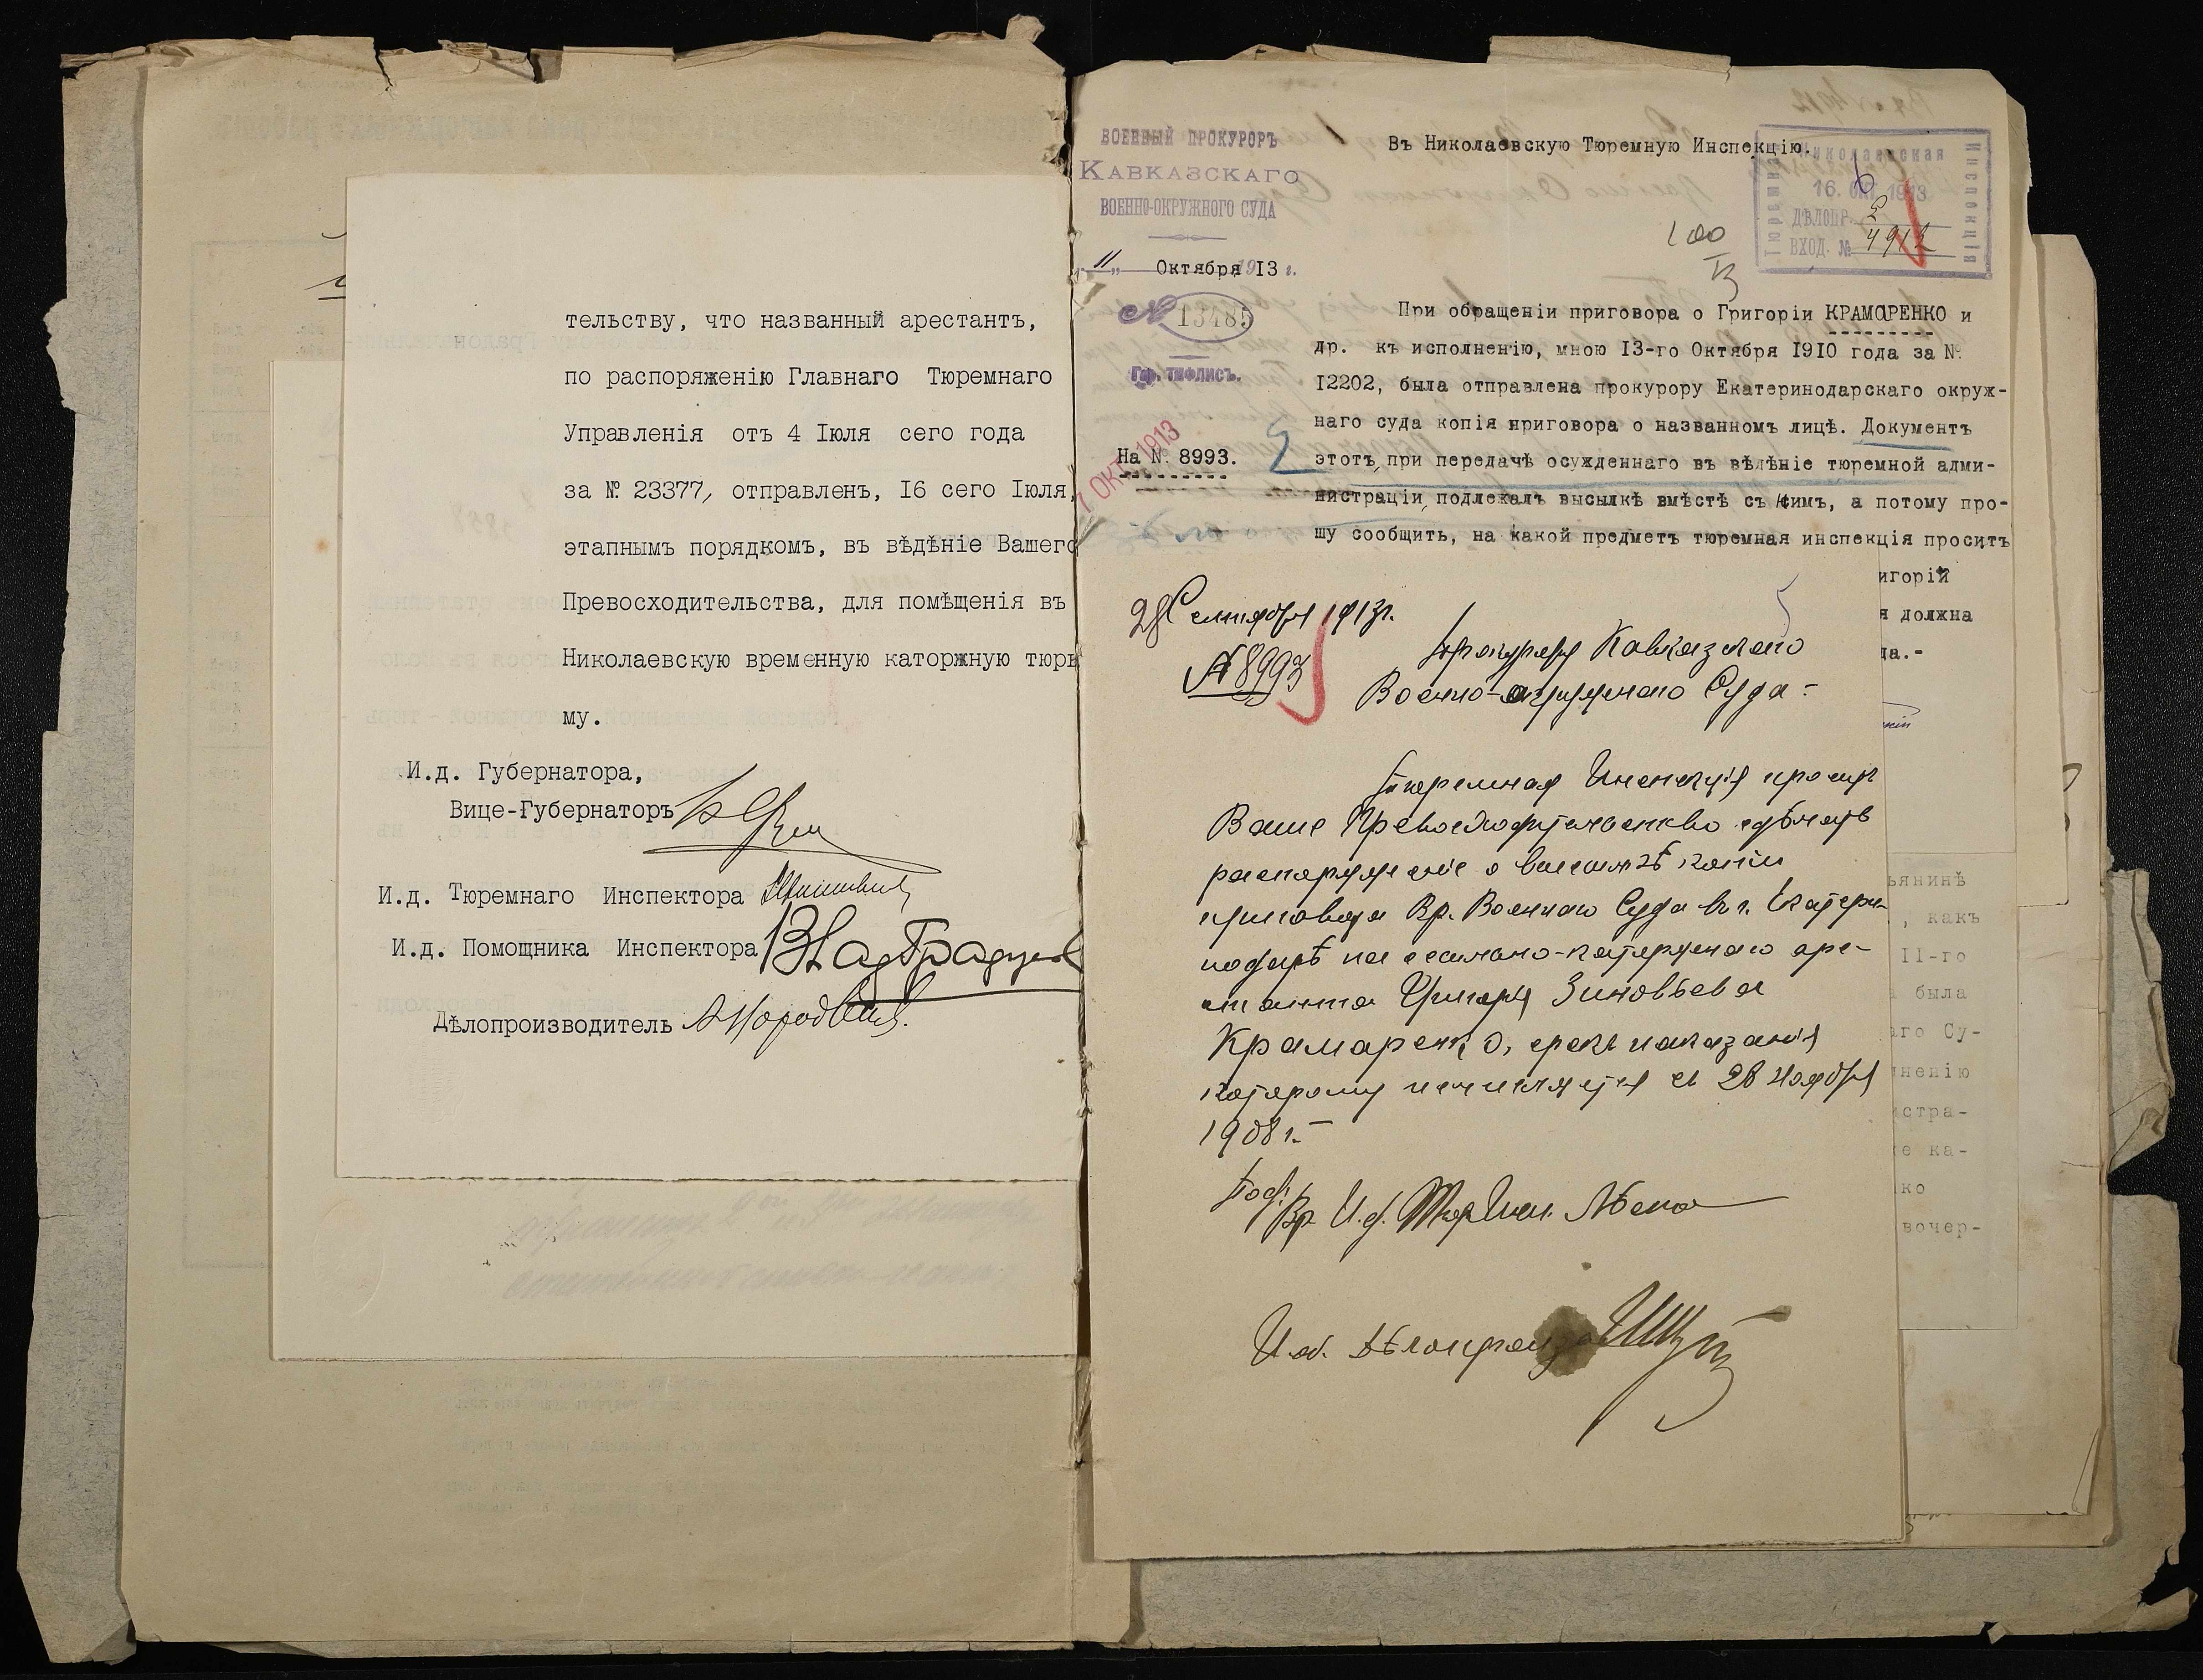 тельству, что названный арестантъ,
по распоряженію Главнаго Тюремнаго
Управленія отъ 4 Іюля сего года
за № 23377, отправленъ, 16 сего Іюля,
этапнымъ порядкомъ, въ вѣдѣніе Вашего
Превосходительства, для помѣщенія въ
Николаевскую временную каторжную тюрь
му.
И.д. Губернатора,
Вице-Губернаторъ
И.д. Тюремнаго Инспектора
И.д. Помощника Инспектора
Дѣлопроизводитель
ВОЕННЫЙ ПРОКУРОРЪ
КАВКАЗСКАГО
ВОЕННО-ОКРУЖНОГО СУДА
„11„ Октября 1913 г.
№ 13485
Гор. ТИФЛИСЪ.
7 ОКТ 1913
На № 8993.
Въ Николаевскую Тюремную Инспекцію.
Николаевская
Тюремная
Инспекція
16. ОКТ. 1913
ДѢЛОПР. 2
ВХОД. № 4912
100
При обращеніи приговора о Григоріи КРАМАРЕНКО и
др. къ исполненію, мною 13-го Октября 1910 года за №
12202, была отправлена прокурору Екатеринодарскаго окруж-
наго суда копія приговора о названномъ лицѣ. Документъ
этотъ, при передачѣ осужденнаго въ вѣдѣніе тюремной адми-
нистраціи, подлежалъ высылкѣ вмѣстѣ съ нимъ, а потому про-
шу сообщить, на какой предметъ тюремная инспекція проситъ
игорій
я должна
да.-
28 Сентября 1913 г.
№ 8993
Прокурору Кавказскаго
Военно-окружнаго Суда-
Тюремная Инспекція проситъ
Ваше Превосходительство сдѣлать
распоряженіе о высылкѣ копіи
приговора Вр. Военнаго Суда въ г. Екатери-
нодарѣ на ссыльно-каторжнаго аре-
станта Григорія Зиновьева
Крамаренко, срокъ наказанія
которому исчисляется съ 28 Ноября
1908 г.-
Подп. Вр. И.д. Тюр. Инсп.
И.об. Дѣлопроизв
ьянинѣ
, какъ
11-го
была
аго Су-
ненію
истра-
е ка-
ко
вочер-